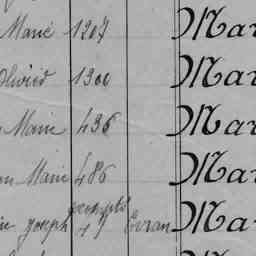 Marie 1207 Mar
Olivier 1300 Mar
Marie 436 Mar
Marie 486 Mar
Joseph 47 Evran Mar